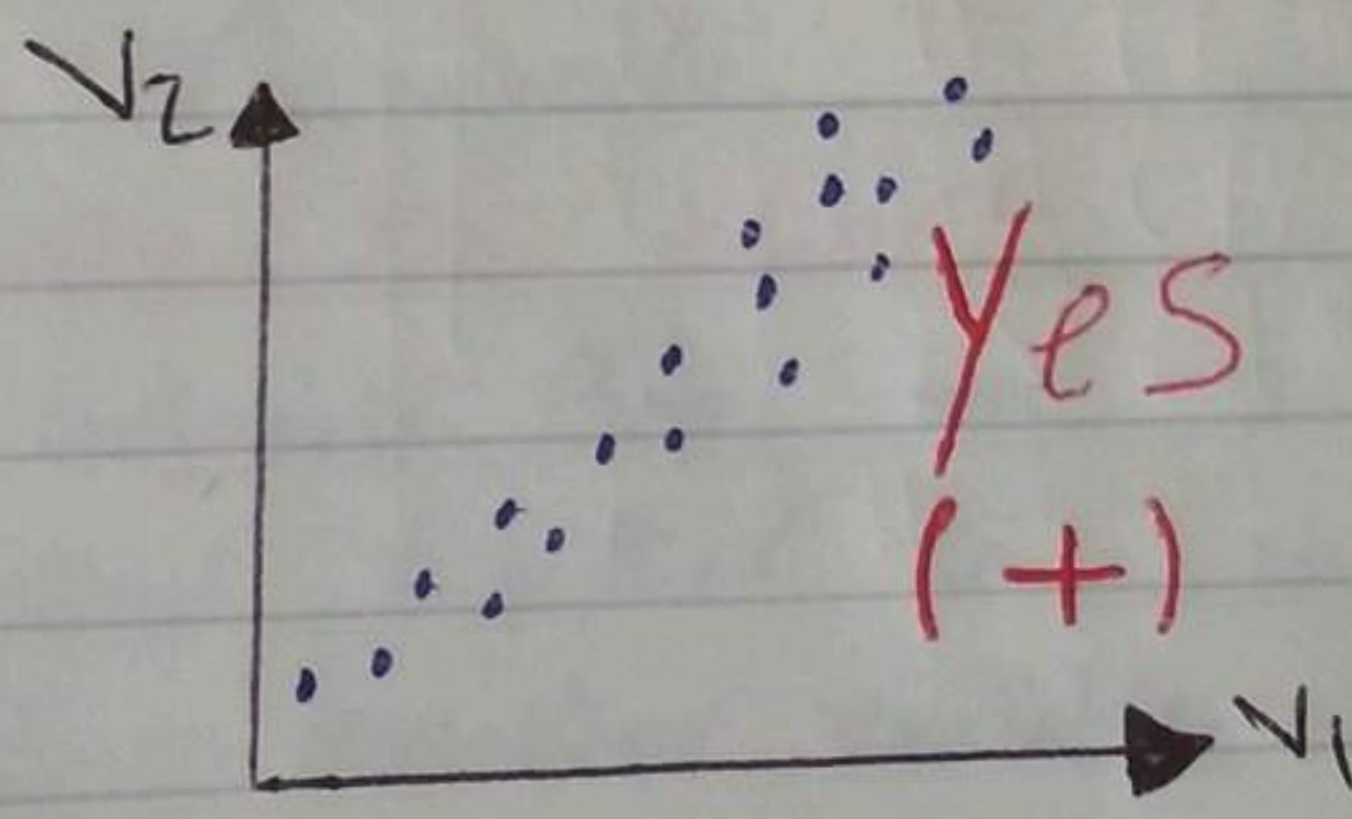 V2
Yes
(+)
V1